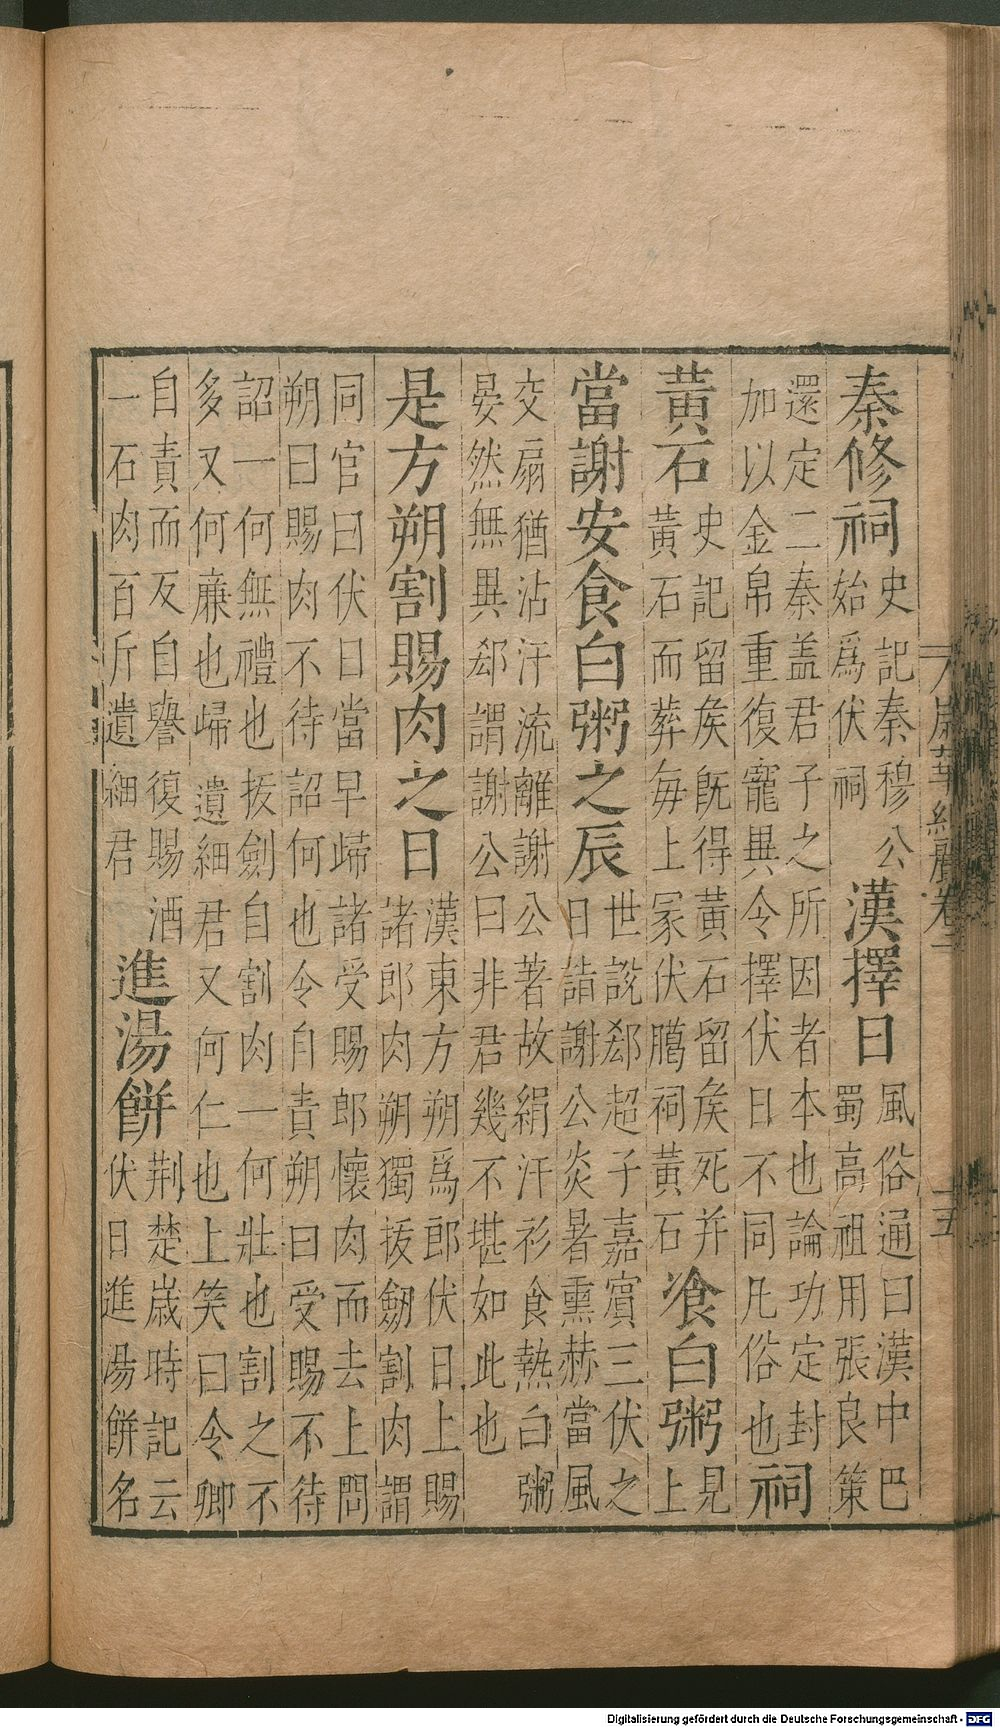 秦修祠
史記秦穆公
始爲伏祠
漢擇日
風俗通曰漢中巴
蜀高祖用張良策
還定二秦盖君子之所因者本也論功定封
加以金帛重復寵異令擇伏日不同凡俗也
祠
黃石
史記留矦既得黃石留矦死并
黃石而葬毎上冢伏臈祠黃石
飡白粥
見
上
當謝安食白粥之辰
世說郄超子嘉賓三伏之
日詣謝公炎暑熏赫當風
交扇猶沾汗流離謝公著故絹汗衫食熱白粥
晏然無異郄謂謝公曰非君幾不堪如此也
是方朔割賜肉之日
漢東方朔爲郎伏日上賜
諸郎肉朔獨拔劒割肉謂
同官曰伏日當早歸諸受賜郎懷肉而去上問
朔曰賜肉不待詔何也令自責朔曰受賜不待
詔一何無禮也拔劍自割肉一何壯也割之不
多又何廉也歸遺細君又何仁也上笑曰令卿
自責而反自譽復賜酒
一石肉百斤遺細君
進湯餅
荆楚歲時記云
伏日進湯餅名
Digitalisierung gefördert durch die Deutsche Forschungsgemeinschaft - DFG